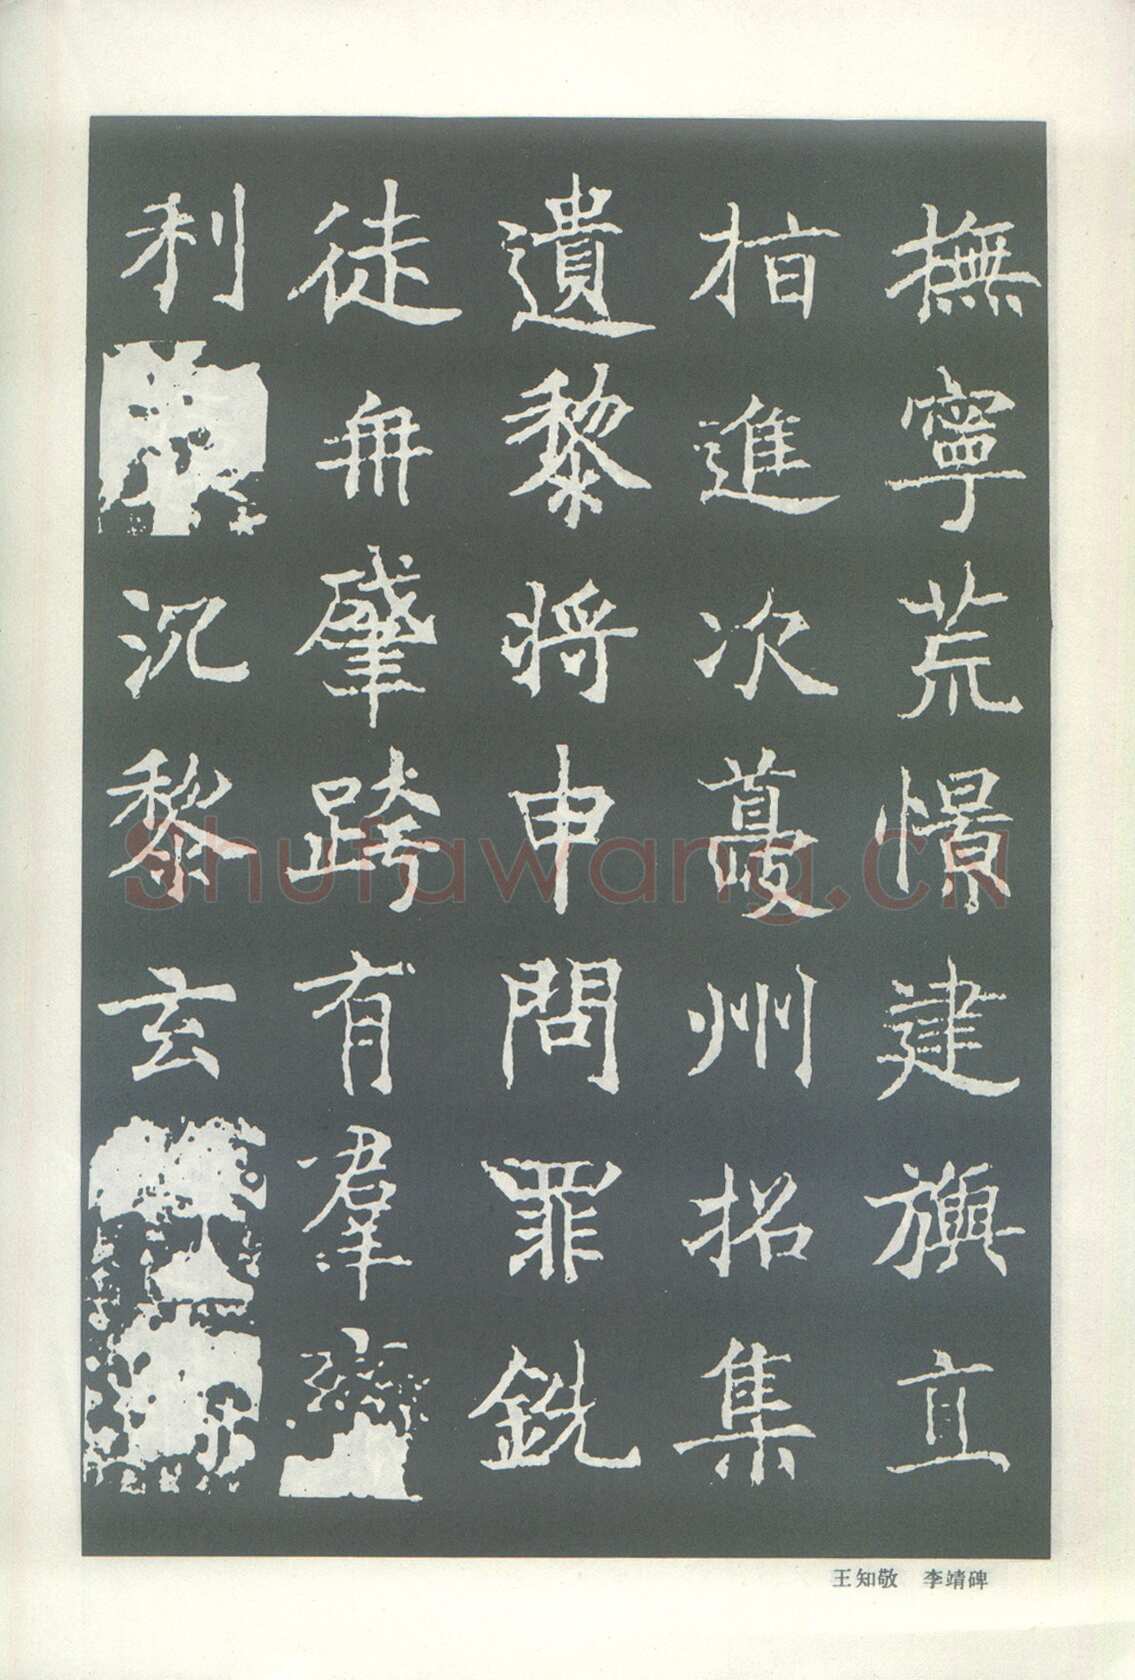 撫寧荒憬建旟立
指進次蔓州招集
遺黎將申問罪銑
徒舟肇跨有羣
利沉黎玄
王知敬 李靖碑
Shufawang.cn